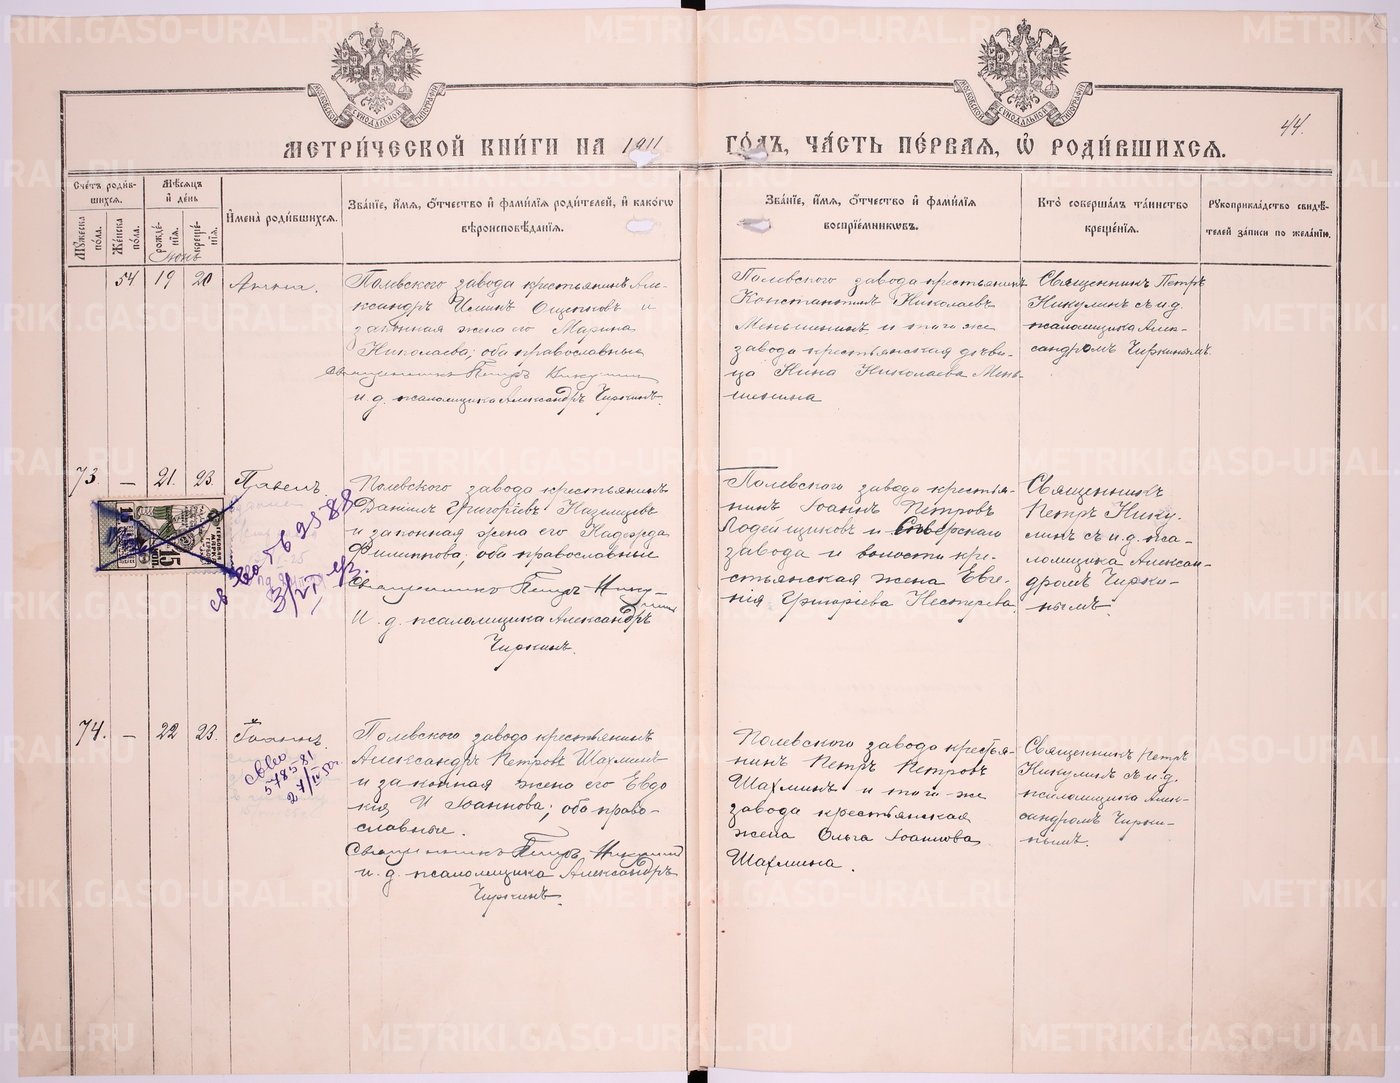 METRIKI.GASO-URAL.RU
МОСКОВСКОЙ СѴНОДАЛЬНОЙ ТИПОГРАФІИ
МОСКОВСКОЙ СѴНОДАЛЬНОЙ ТИПОГРАФІИ
44.
МЕТРИ́ЧЕСКОЙ КНИ́ГИ НА 1911 ГО́ДЪ, ЧА́СТЬ ПЕ́РВАЯ, Ѡ҆ РОДИ́ВШИХСЯ.
Сче́тъ роди́в-
шихся.
Мꙋ́жеска по́ла.
Же́нска по́ла.
Мѣ́сяцъ
и҆ де́нь
рожде́-
нїя.
креще́-
нїя.
И҆мена̀ роди́вшихся.
Зва́нїе, и҆́мя, ѻ҆́тчество и҆ фами́лїя роди́телей, и҆ како́гѡ
вѣроисповѣ́данїя.
Зва́нїе, и҆́мя, ѻ҆́тчество и҆ фами́лїя
воспрїе́мниковъ.
Кто̀ соверша́лъ та́инство
креще́нїя.
Рꙋкоприкла́дство свидѣ́-
телей за́писи по жела́нїю.
54 19 20
Полевского завода крестьянинъ Але-
ксандръ Ощепковъ и
законная жена его Марина
Николаева; оба православные
Священникъ Петръ Никулин
и. д. псаломщика Александръ Чиркинъ.
Полевского завода крестьянинъ
Константинъ Николаевъ
Меньшенинъ и того же
завода крестьянская дѣви-
ца Нина Николаева Мень-
шенина
Священникъ Петръ
Никулинъ съ и. д.
псаломщика Алек-
сандромъ Чиркинымъ.
73. — 21. 23. Павелъ.
15
Полевского завода крестьянинъ
Даниил Григорьевъ Казанцев
и законная жена его Надежда
Филиппова; оба православные
Священникъ Петръ Нику-
лин
И. д. псаломщика Александръ
Чиркинъ.
Полевского завода крестья-
нинъ Іоаннъ Петровъ
и Сѣверскаго
завода и волости кре-
стьянская жена Евге-
нія Григоріева Нестерова.
Священникъ
Петръ Нику-
линъ съ и. д. пса-
ломщика Алексан-
дромъ Чирки-
нымъ.
74. — 22 23. Іоаннъ.
578581
27/IV 50г.
Полевского завода крестьянинъ
Александръ Петровъ Шахминъ
и законная жена его Евдо
кия Иоаннова; оба право-
славные.
Священникъ Петръ Никулин
и. д. псаломщика Александръ
Чиркинъ.
Полевского завода крестья-
нинъ Петръ Петровъ
Шахминъ и того-же
завода крестьянская
жена Ольга Іоаннова
Шахмина.
Священникъ Петръ
Никулинъ съ и. д.
псаломщика Алек-
сандромъ Чирки-
нымъ.